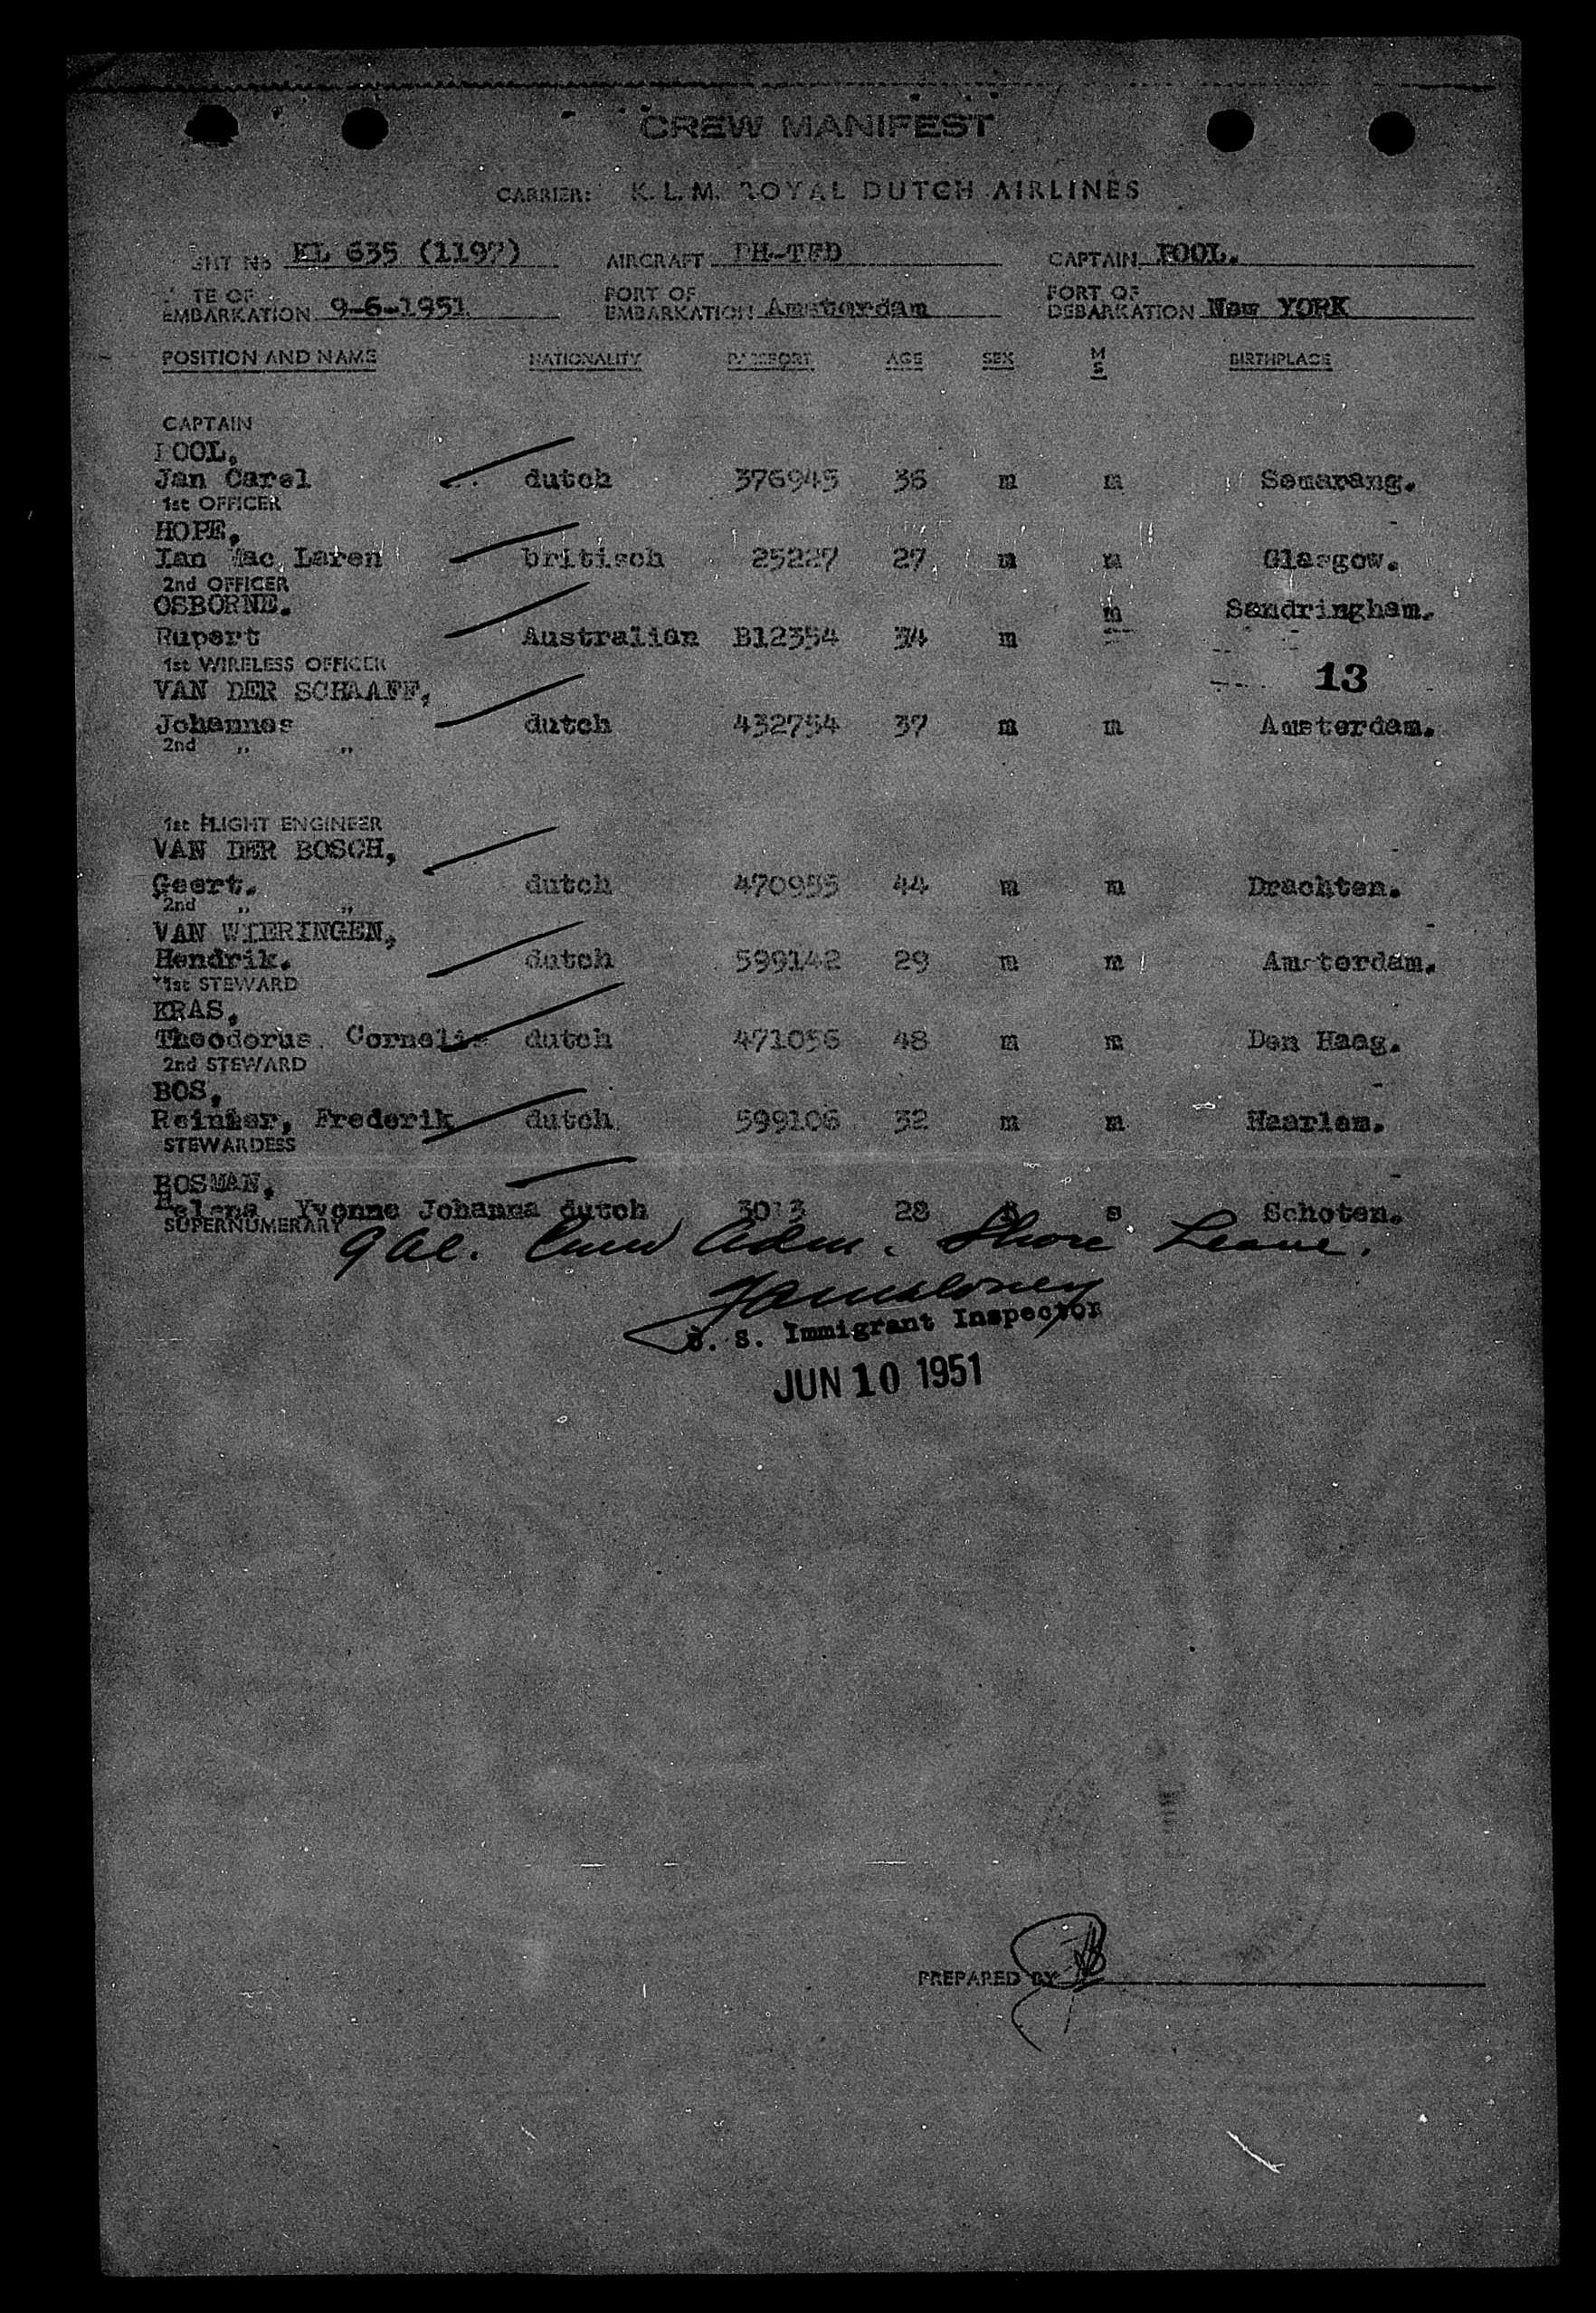 CREW MANIFEST
CARRIER: K. L. M. ROYAL DUTCH AIRLINES
GHT No KL 635 (1197) AIRCRAFT PH-TFD CAPTAIN POOL.
TE OF EMBARKATION 9-6-1951 PORT OF EMBARKATION Amsterdam PORT OF DEBARKATION New YORK
POSITION AND NAME NATIONALITY PASSPORT AGE SEX M S BIRTHPLACE
CAPTAIN
POOL,
Jan Carel dutch 376945 36 m m Semarang.
1st OFFICER
HOPE,
Ian Mac Laren britisch 25227 27 m m Glasgow.
2nd OFFICER
OSBORNE. m Sandringham.
Rupert Australian B12354 34 m
1st WIRELESS OFFICER
VAN DER SCHAAFF, 13
Johannes dutch 432754 37 m m Amsterdam.
2nd ,, ,,
1st FLIGHT ENGINEER
VAN DER BOSCH,
Geert. dutch 470955 44 m m Drachten.
2nd ,, ,,
VAN WIERINGEN,
Hendrik. dutch 599142 29 m m Amsterdam.
1st STEWARD
KRAS,
Theodorus Cornelis dutch 471056 48 m m Den Haag.
2nd STEWARD
BOS,
Frederik dutch 599106 32 m m Haarlem.
STEWARDESS
BOSMAN,
Helena Yvonne Johanna dutch 3013 28 s Schoten.
SUPERNUMERARY
9 Crew Adm. Shore Leave.
U. S. Immigrant Inspector
JUN 10 1951
PREPARED BY